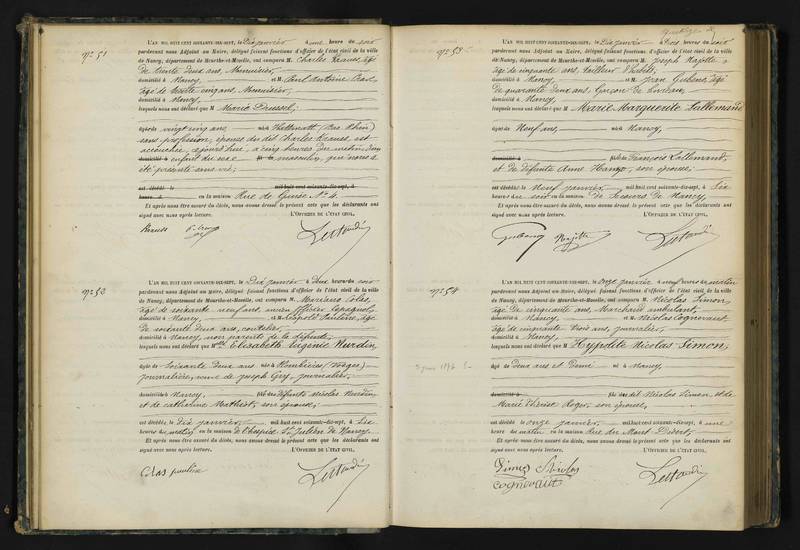 n° 51
L'AN MIL HUIT CENT SOIXANTE-DIX-SEPT, le Dix janvier à une heure du soir
pardevant nous Adjoint au Maire, délégué faisant fonctions d'officier de l'état civil de la ville
de Nancy, département de Meurthe-et-Moselle, ont comparu M. Charles Kraus, âgé
de trente deux ans, Menuisier,
domicilié à Nancy, et M. Paul Antoine
âgé de trente cinq ans, Menuisier,
domicilié à Nancy,
lesquels nous ont déclaré que M Marie
âgée de vingt cinq ans née à (Bas Rhin)
sans profession, épouse du dit Charles Kraus, est
accouchée, aujourd'hui, à cinq heures du matin, d'un
domicilié à enfant du sexe fils de masculin, qui nous a
été présenté sans vie;
est décédé le mil huit cent soixante-dix-sept, à
heure d en la maison Rue de Guise, N° 4.
Et après nous être assuré du décès, nous avons dressé le présent acte que les déclarants ont
signé avec nous après lecture. L'OFFICIER DE L'ÉTAT CIVIL,
n° 52
L'AN MIL HUIT CENT SOIXANTE-DIX-SEPT, le Dix janvier à deux heures du soir
pardevant nous Adjoint au Maire, délégué faisant fonctions d'officier de l'état civil de la ville
de Nancy, département de Meurthe-et-Moselle, ont comparu M. Mariano Colas,
âgé de soixante neuf ans, ancien officier Espagnol,
domicilié à Nancy, et M. Léopold âgé
de soixante deux ans, coutelier,
domicilié à Nancy, non parents de la défunte,
lesquels nous ont déclaré que M Elisabeth Eugénie Wurdin,
âgée de Soixante deux ans née à Plombières (Vosges)
journalière, veuve de Joseph Gry, journalier,
domiciliée à Nancy, fille des défunts Nicolas Wurdin,
et de Catherine Mathiot, son épouse;
est décédée le dix janvier mil huit cent soixante-dix-sept, à six
heures du matin, en la maison de l'hospice St Julien de Nancy
Et après nous être assuré du décès, nous avons dressé le présent acte que les déclarants ont
signé avec nous après lecture. L'OFFICIER DE L'ÉTAT CIVIL,
Colas
n° 53
L'AN MIL HUIT CENT SOIXANTE-DIX-SEPT, le Dix janvier à trois heures du soir
pardevant nous Adjoint au Maire, délégué faisant fonctions d'officier de l'état civil de la ville
de Nancy, département de Meurthe-et-Moselle, ont comparu M. Joseph Majotte,
âgé de cinquante ans, Tailleur d'habits,
domicilié à Nancy, et M. Jean âgé
de quarante deux ans, Garçon de bureau,
domicilié à Nancy,
lesquels nous ont déclaré que M Marie Marguerite Lallemand
âgée de Neuf ans, née à Nancy,
domicilié à fille de François Lallemand,
et de défunte Anne Hanzo, son épouse;
est décédée le Neuf janvier mil huit cent soixante-dix-sept, à six
heures du soir en la maison de Secours de Nancy,
Et après nous être assuré du décès, nous avons dressé le présent acte que les déclarants ont
signé avec nous après lecture. L'OFFICIER DE L'ÉTAT CIVIL,
Majotte
n° 54
L'AN MIL HUIT CENT SOIXANTE-DIX-SEPT, le onze janvier à neuf heures du matin
pardevant nous Adjoint au Maire, délégué faisant fonctions d'officier de l'état civil de la ville
de Nancy, département de Meurthe-et-Moselle, ont comparu M. Nicolas Simon,
âgé de Cinquante ans, Marchand ambulant,
domicilié à Nancy et M. Nicolas Cognevaut
âgé de cinquante trois ans, journalier,
domicilié à Nancy,
lesquels nous ont déclaré que M Hypolite Nicolas Simon,
âgé de deux ans et Demi né à Nancy,
domicilié à fils du dit Nicolas Simon, et de
Marie Thérèse Roger, son épouse,
est décédé le onze janvier, mil huit cent soixante-dix-sept, à une
heure du matin en la maison Rue du
Et après nous être assuré du décès, nous avons dressé le présent acte que les déclarants ont
signé avec nous après lecture. L'OFFICIER DE L'ÉTAT CIVIL,
Simon Nicolas
cognevaut